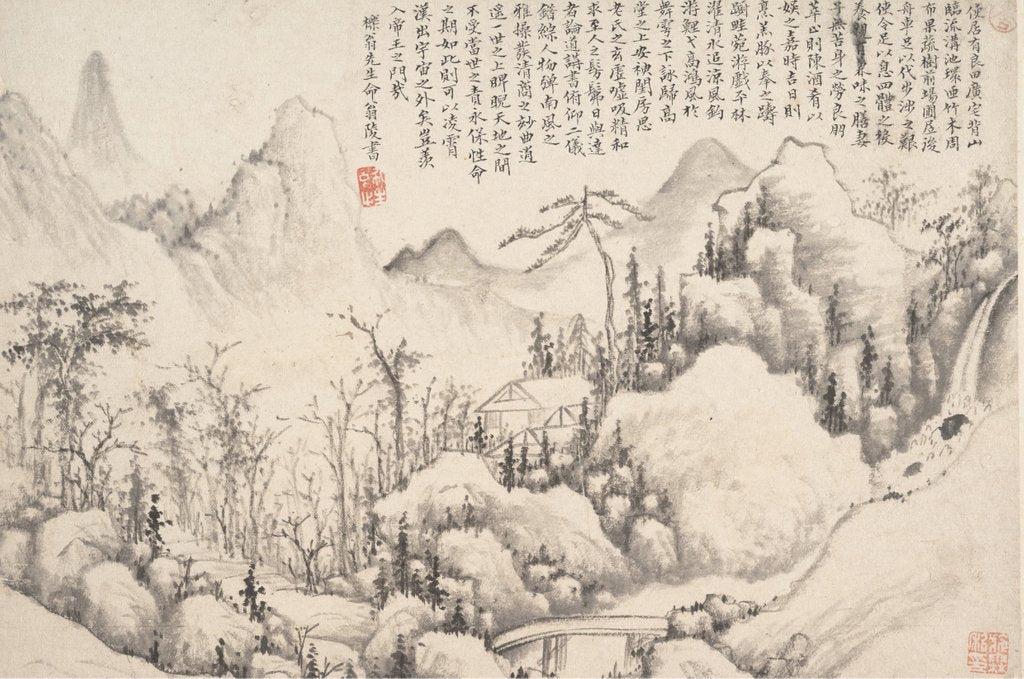 使居有良田廣宅背山
臨流溝池環匝竹木周
布果蔬樹前場圃居後
舟車足以代步涉之艱
使令足以息四體之役
養親有兼味之膳妻
子無苦身之勞良朋
萃止則陳酒肴以
娛之嘉時吉日則
烹羔豚以奉之躊
躇畦苑游戲平林
濯清水追涼風釣
游鯉弋高鴻風於
舞雩之下詠歸高
堂之上安神閨房思
老氏之玄虛噓吸精和
求至人之髣髴日與達
者論道講書俯仰二儀
錯綜人物彈南風之
雅操發清商之妙曲逍
遙一世之上睥睨天地之間
不受當世之責永保性命
之期如此則可以凌霄
漢出宇宙之外矣豈羨
入帝王之門哉
櫟翁先生命翁陵書